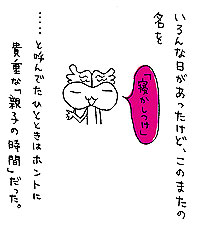 いろんな日があったけど、このまたの
名を
「寝かしつけ」
……と呼んでたひとときはホントに
貴重な「親子の時間」だった。